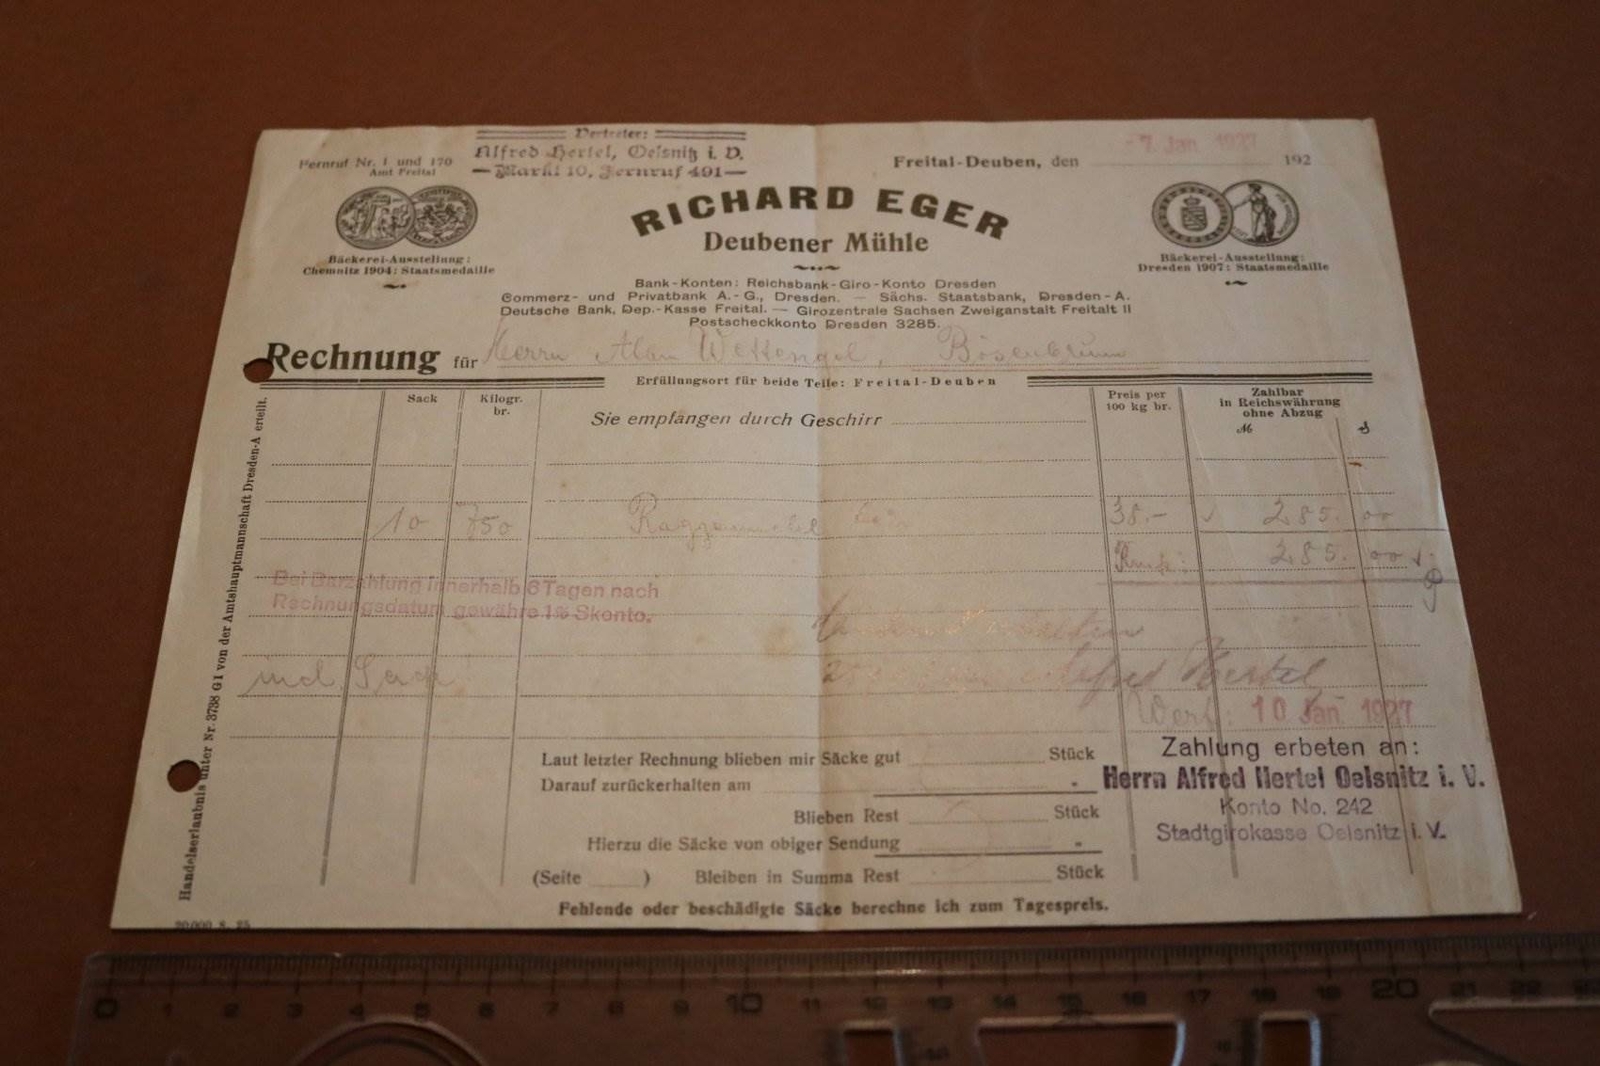 Vertreter:
Alfred Hertel, Oelsnitz i. V.
Markt 10, Fernruf 491
Fernruf Nr. 1 und 170
Amt Freital
Freital-Deuben, den -7. Jan. 1927 192
RICHARD EGER
Deubener Mühle
Bäckerei-Ausstellung:
Chemnitz 1904: Staatsmedaille
Bäckerei-Ausstellung:
Dresden 1907: Staatsmedaille
Bank-Konten: Reichsbank-Giro-Konto Dresden
Commerz- und Privatbank A.-G., Dresden. — Sächs. Staatsbank, Dresden-A.
Deutsche Bank, Dep.-Kasse Freital. — Girozentrale Sachsen Zweiganstalt Freitalt II
Postscheckkonto Dresden 3285.
Rechnung für Herrn Wettengel, Bösenbrunn
Erfüllungsort für beide Teile: Freital-Deuben
Sack
Kilogr. br.
Sie empfangen durch Geschirr
Preis per 100 kg br.
Zahlbar in Reichswährung ohne Abzug
M
10 750 Roggenmehl 38.- 285. 00
285. 00
Bei Barzahlung innerhalb 8 Tagen nach
Rechnungsdatum gewähre 1% Skonto.
incl. Sack
Alfred Hertel
Wert: 10. Jan. 1927
Zahlung erbeten an:
Herrn Alfred Hertel Oelsnitz i. V.
Konto No. 242
Stadtgirokasse Oelsnitz i. V.
Laut letzter Rechnung blieben mir Säcke gut Stück
Darauf zurückerhalten am "
Blieben Rest Stück
Hierzu die Säcke von obiger Sendung "
(Seite ) Bleiben in Summa Rest Stück
Fehlende oder beschädigte Säcke berechne ich zum Tagespreis.
Handelserlaubnis unter Nr. 3738 G I von der Amtshauptmannschaft Dresden-A erteilt.
20000 8. 25
0 1 2 3 4 5 6 7 8 9 10 11 12 13 14 15 16 17 18 19 20 21 22 23